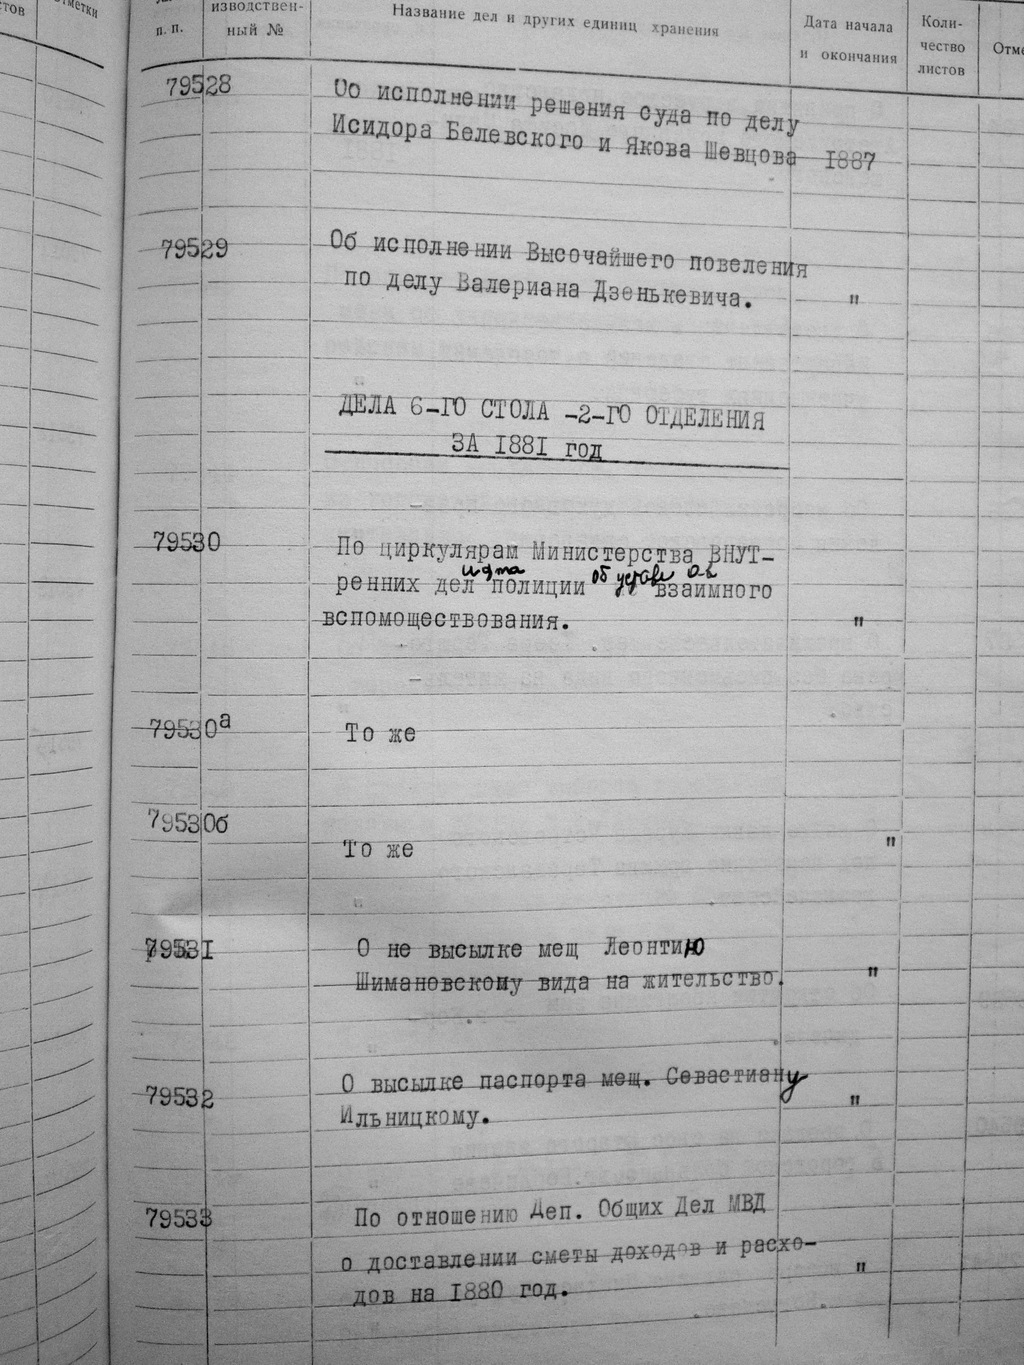 стов
отметки
п. п.
изводствен-
ный №
Название дел и других единиц хранения
Дата начала
и окончания
Коли-
чество
листов
Отме
79528
Об исполнении решения суда по делу
Исидора Белевского и Якова Шевцова 1887
79529
Об исполнении Высочайшего повеления
по делу Валериана Дзенькевича. "
ДЕЛА 6-ГО СТОЛА -2-ГО ОТДЕЛЕНИЯ
ЗА 1881 год
79530
По циркулярам Министерства ВНУТ-
ренних дел полиции взаимного
вспомоществования. "
79530а
То же
79530б
То же "
79531
О не высылке мещ Леонтию
Шимановскому вида на жительство. "
79532
О высылке паспорта мещ. Севастиану
Ильницкому. "
79533
По отношению Деп. Общих Дел МВД
о доставлении сметы доходов и расхо-
дов на 1880 год. "